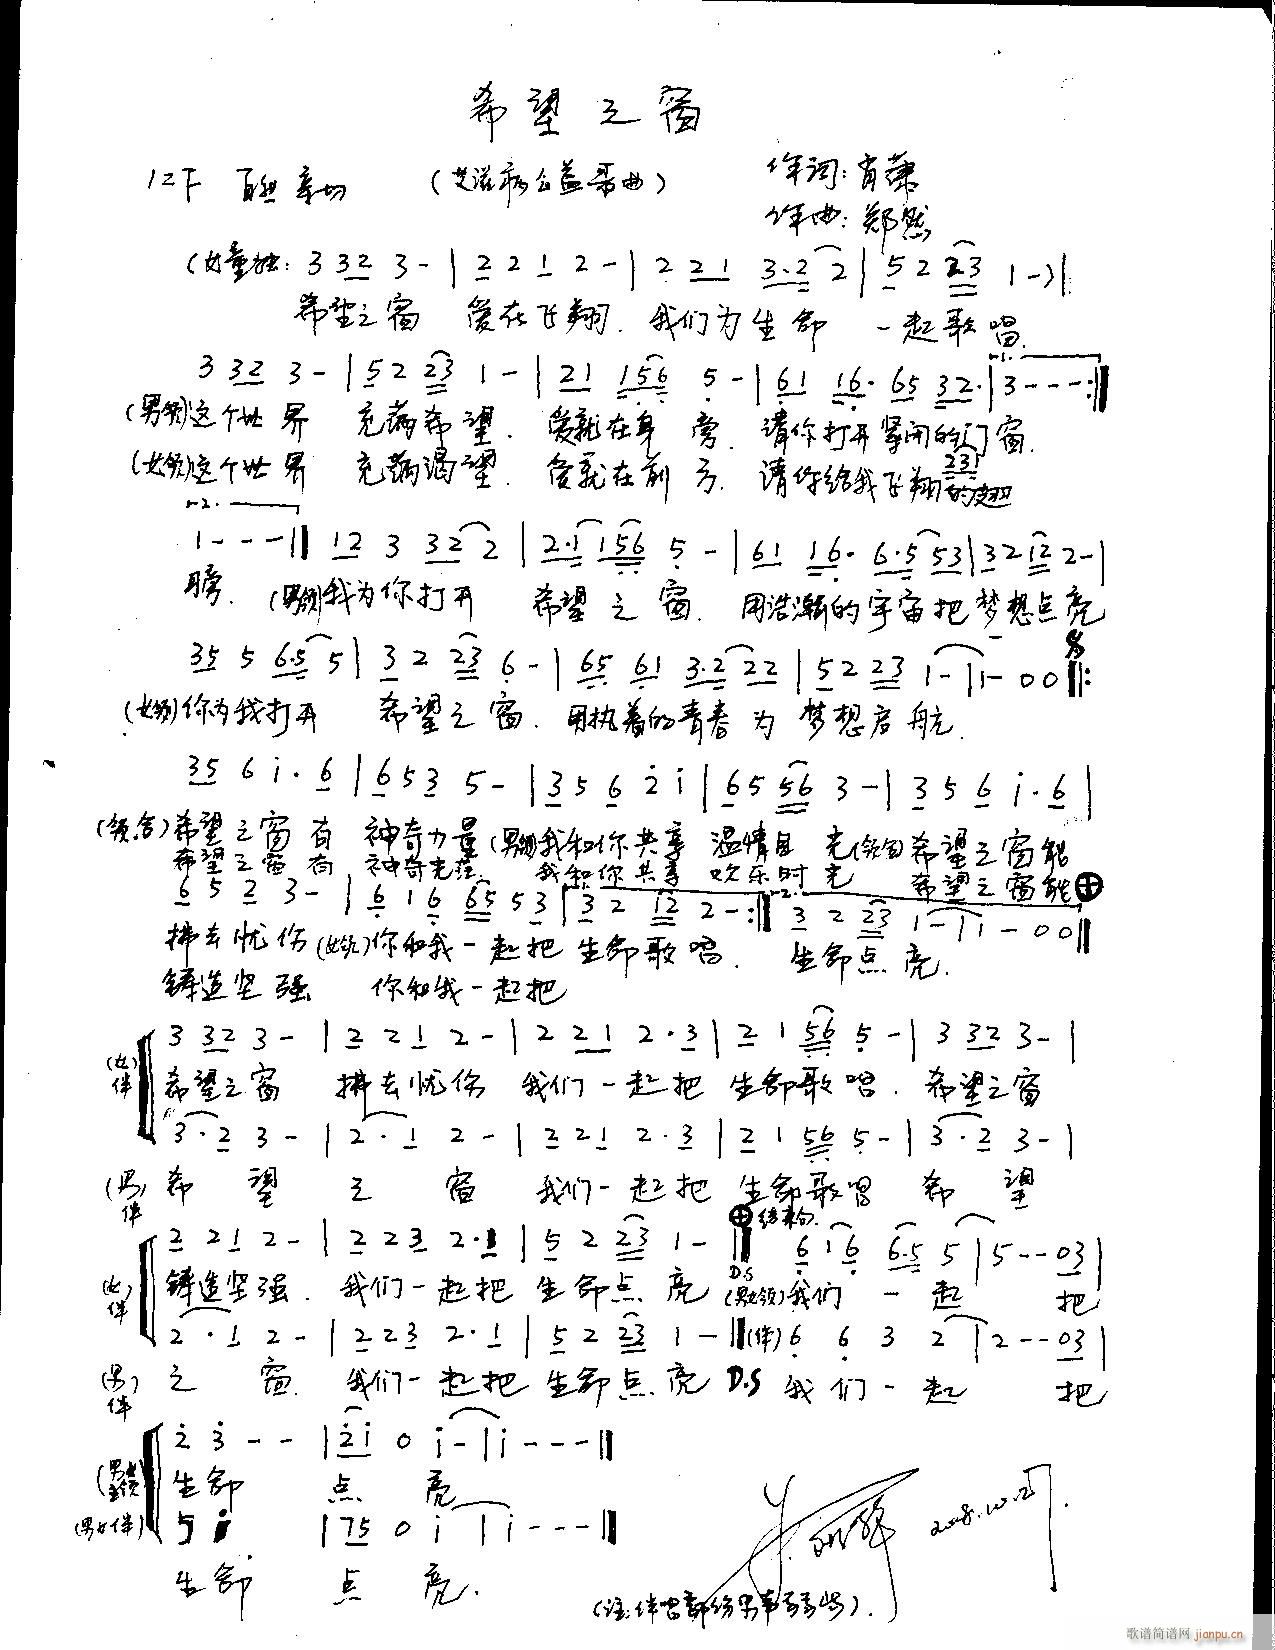 希望之窗
1=F 亲切 (艾滋病公益歌曲) 作词:肖萧
作曲:郑然
(女童独: 3 32 3 - | 2 2 1 2 - | 2 21 3·2 2 | 5 2 23 1 -)|
希望之窗 爱在飞翔. 我们为生命 一起歌唱.
3 32 3 - | 5 2 23 1 - | 21 156 5 - | 61 16· 65 32· | 3 - - - :||
(男领)这个世界 充满希望. 爱就在身旁. 请你打开紧闭的门窗.
(女领)这个世界 充满渴望. 爱就在前方. 请你给我飞翔的翅
231
1 - - - || 12 3 32 2 | 2·1 156 5 - | 61 16· 6·5 53 | 32 12 2 - |
膀. (男领)我为你打开 希望之窗. 用浩瀚的宇宙把梦想点亮
35 5 6·5 5 | 3 2 23 6 - | 65 61 3·2 22 | 52 23 1 - | 1 - 0 0 ||:
(女领)你为我打开 希望之窗. 用执着的青春为梦想启航.
35 6 i· 6 | 6 5 3 5 - | 3 5 6 2 i | 65 56 3 - | 3 5 6 i· 6 |
(领合)希望之窗有神奇力量(男领)我和你共享温情目光(领合)希望之窗能
希望之窗有神奇光芒. 我和你共享欢乐时光 希望之窗能
6 5 2 3 - | 6 1 6 65 53 | 3 2 12 2 - :|| 3 2 23 1 - | 1 - 0 0 ||
拂去忧伤(女领)你和我一起把生命歌唱. 生命点亮.
铸造坚强 你和我一起把
3 32 3 - | 2 2 1 2 - | 2 21 2·3 | 2 1 56 5 - | 3 32 3 - |
(女伴) 希望之窗 拂去忧伤 我们一起把生命歌唱. 希望之窗
3·2 3 - | 2·1 2 - | 2 21 2·3 | 2 1 56 5 - | 3·2 3 - |
(男伴) 希望之窗 我们一起把生命歌唱 希望
结束句.
2 2 1 2 - | 2 2 3 2·1 | 5 2 23 1 - || 6 1 6 6·5 5 | 5 - - 03 |
(女伴) 铸造坚强. 我们一起把生命点亮 D.S (男女领)我们一起把
2·1 2 - | 2 2 3 2·1 | 5 2 23 1 - ||(伴) 6 6 3 2 | 2 - - 03 |
(男伴) 之窗. 我们一起把生命点亮 D.S 我们一起把
2 3 - - | 2 i 0 i - | i - - - ||
生命点亮
(男女伴) 5 i | 75 0 i | i - - - ||
生命点亮.
2008.10.27.
歌谱简谱网 jianpu.cn